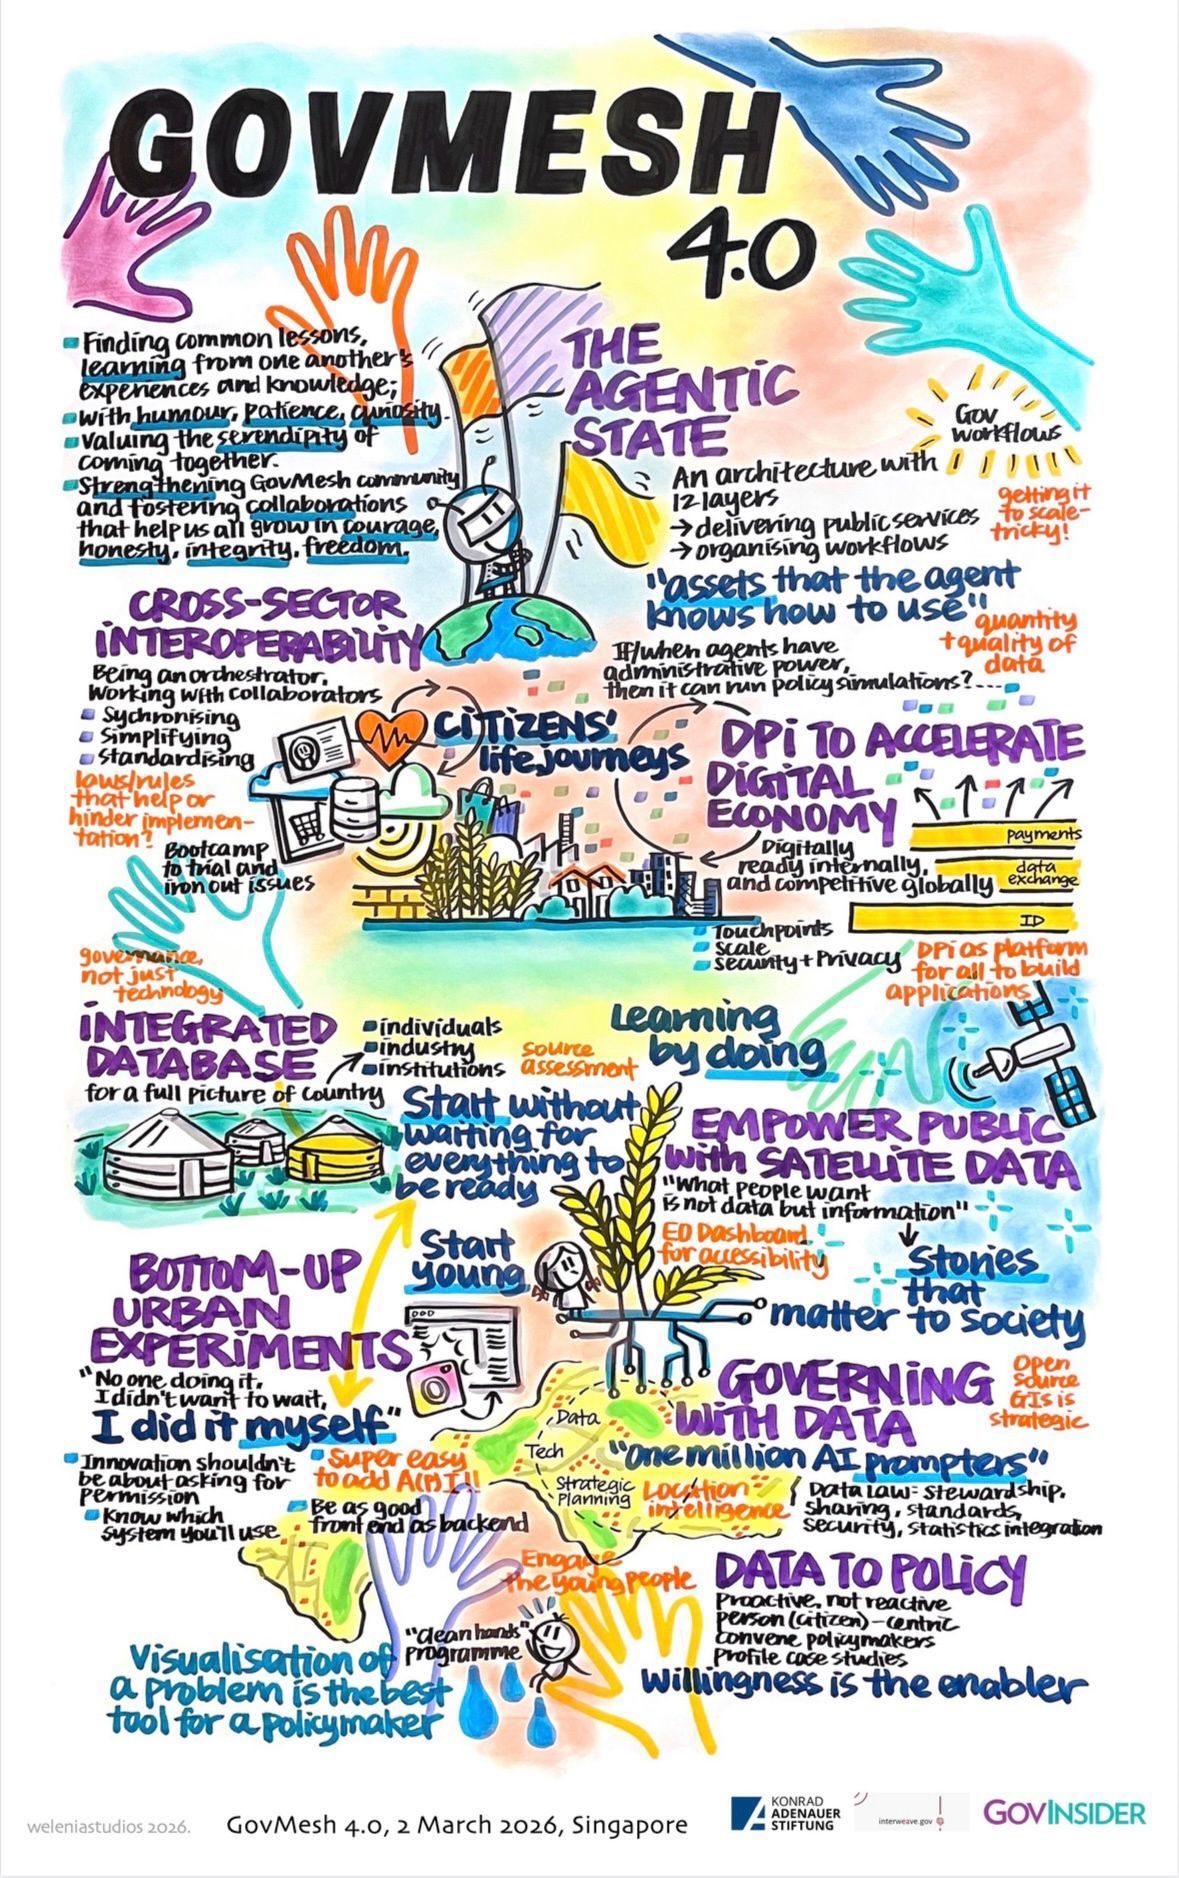 GOVMESH
4.0
Finding common lessons,
learning from one another's
experiences and knowledge;
with humour, patience, curiosity.
Valuing the serendipity of
coming together.
Strengthening GovMesh community
and fostering collaborations
that help us all grow in courage,
honesty, integrity, freedom.
THE
AGENTIC
STATE
Gov
workflows
An architecture with
12 layers
→ delivering public services
→ organising workflows
getting it
to scale-
tricky!
"assets that the agent
knows how to use"
quantity
+ quality of
data
If/when agents have
administrative power,
then it can run policy simulations?....
CROSS-SECTOR
INTEROPERABILITY
Being an orchestrator.
Working with collaborators
Sychronising
Simplifying
Standardising
laws/rules
that help or
hinder implemen-
tation?
Bootcamp
to trial and
iron out issues
governance,
not just
technology
CITIZENS'
life journeys
DPI TO ACCELERATE
DIGITAL
ECONOMY
payments
data
exchange
ID
Digitally
ready internally,
and competitive globally
Touchpoints
Scale
Security + Privacy
DPI as platform
for all to build
applications
INTEGRATED
DATABASE
for a full picture of country
individuals
industry
institutions
source
assessment
Learning
by doing
Start without
waiting for
everything to
be ready
EMPOWER PUBLIC
with SATELLITE DATA
"What people want
is not data but information"
EO Dashboard
for accessibility
Stories
that
matter to society
Start
young
BOTTOM-UP
URBAN
EXPERIMENTS
"No one doing it,
I didn't want to wait,
I did it myself"
Innovation shouldn't
be about asking for
permission
Know which
system you'll use
Super easy
to add A(R)I!!
Be as good
front end as backend
GOVERNING
WITH DATA
Open
source
GIS is
strategic
Data
Tech
Strategic
Planning
"One million AI prompters"
Location
intelligence
Data law: stewardship,
sharing, standards,
security, statistics integration
Engage
the young people
DATA TO POLICY
Proactive, not reactive
person (citizen)-centric
convene policymakers
Profile case studies
Willingness is the enabler
"clean hands"
programme
Visualisation of
a problem is the best
tool for a policymaker
weleniastudios 2026.
GovMesh 4.0, 2 March 2026, Singapore
KONRAD
ADENAUER
STIFTUNG
interweave.gov
GOVINSIDER